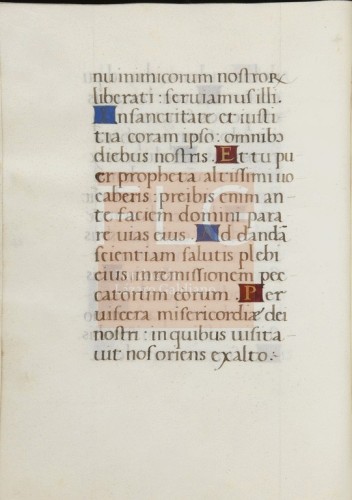 nu inimicorum nostroꝝ
liberati: seruiamus illi.
In sanctitate et iusti
tia coram ipso: omnibꝫ
diebus nostris. Et tu pu
er propheta altissimi uo
caberis: preibis enim an
te faciem domini para
re uias eius. Ad dandã
scientiam salutis plebi
eius in remissionem pec
catorum eorum. Per
uiscera misericordiæ dei
nostri: in quibus uisita
uit nos oriens ex alto.